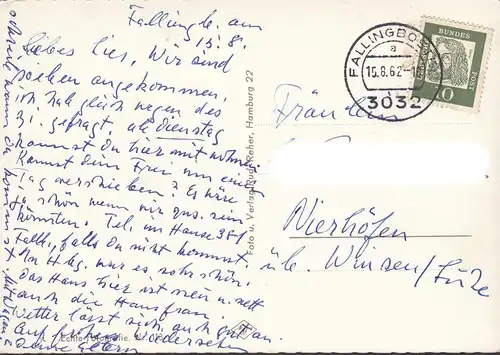 Fallingb. am
15.8.
Liebes Lies, Wir sind
soeben angekommen,
ich hab gleich wegen des
Zi. gefragt, ab Dienstag
kannst Du hier mit wohnen.
Kannst Dein Frei um einen
Tag verschieben? Es wäre
ja schön wenn wir zus. sein
könnten. Tel. im Hause 381
Falls, falls Du nicht kommst.
In Hbg. war es sehr schön.
Das Haus hier ist neu u. nett
auch die Hausfrau.
Wetter lässt sich auch gut an.
Auf frohes Wiedersehen
Deine Eltern
schreib wann Du kommst
Foto u. Verlag Rud. Reher, Hamburg 22
Echte Fotografie.
FALLINGBOSTEL
a
15.8.62
3032
DEUTSCHE BUNDESPOST
10
Fräulein
Vierhöfen
üb. Winsen/Luhe